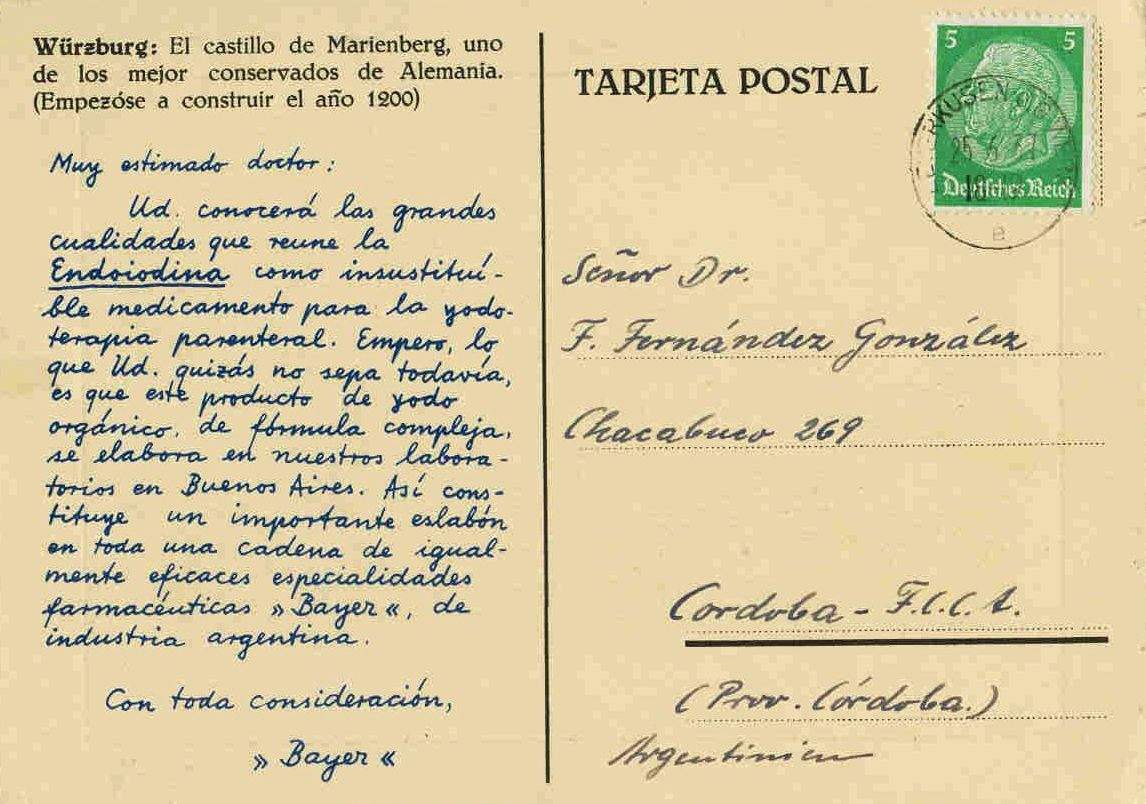 Würzburg: El castillo de Marienberg, uno
de los mejor conservados de Alemania.
(Empezóse a construir el año 1200)
Muy estimado doctor:
Ud. conocerá las grandes
cualidades que reune la
Endoiodina como insustituí-
ble medicamento para la yodo-
terapia parenteral. Empero, lo
que Ud. quizás no sepa todavía,
es que este producto de yodo
orgánico, de fórmula compleja,
se elabora en nuestros labora-
torios en Buenos Aires. Así cons-
tituye un importante eslabón
en toda una cadena de igual-
mente eficaces especialidades
farmacéuticas »Bayer«, de
industria argentina.
Con toda consideración,
»Bayer«
TARJETA POSTAL
5 5
Deutsches Reich
e
Señor Dr.
F. Fernández González
Chacabuco 269
Cordoba - F.C.C.A.
(Prov. Córdoba.)
Argentinien